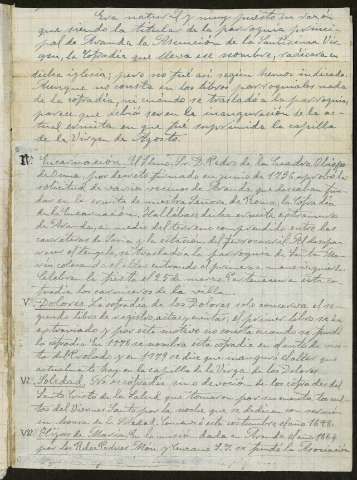 Era natural y muy puesto en razón
que siendo la titular de la parroquia princi-
pal de Aranda la Asunción de la Santísima Vir-
gen, la Cofradía que lleva ese nombre, radicara en
dicha iglesia; pero no fué así según hemos indicado.
Aunque no consta en los libros parroquiales nada
de la cofradía, ni cuando se trasladó a la parroquia,
parece que debió ser en la inauguración de la ac-
tual ermita en que fué suprimida la capilla
de la Virgen de Agosto.
IV. Encarnación. El Ilmo. Sr. D. Pedro de la Cuadra Obispo
de Osma, por decreto firmado en junio de 1736, aprobó la
solicitud de varios vecinos de Aranda que deseaban fun-
dar en la ermita de nuestra Señora de Roma, la Cofradía
de la Encarnación. Hallábase dicha ermita extramuros
de Aranda, a medio del terreno comprendido entre las
carreteras de Soria y la estación del ferrocarril. Al desapa-
recer el templo, se trasladó a la parroquia de Santa Ma-
ría colocando el altar entrando el primero a mano izquierda.
Celebra la fiesta el 25 de marzo. Pertenecen a esta co-
fradía los carniceros de la villa.
V. Dolores. La cofradía de los Dolores solo conserva el se-
gundo libro de registro, actas y cuentas; el primer libro se ha
extraviado y por este motivo no consta cuando se fundó
la cofradía. En 1778 se nombra esta cofradía en
del Rosario y en 1779 se dice que inauguró el altar que
actualmente hay en la capilla de la Virgen de los Dolores.
VI. Soledad. No es cofradía, sino devoción de los cofrades del
Santo Cristo de la Salud, que tomaron por su cuenta los cul-
tos del Viernes Santo por la noche que se dedican con sermón
en honor de la Soledad. Comenzó en septiembre el año 1698.
VII. Hijas de María. En la misión dada en Aranda el año 1864
por los Rdos. Padres Mon y S.J. se fundó la Asociación